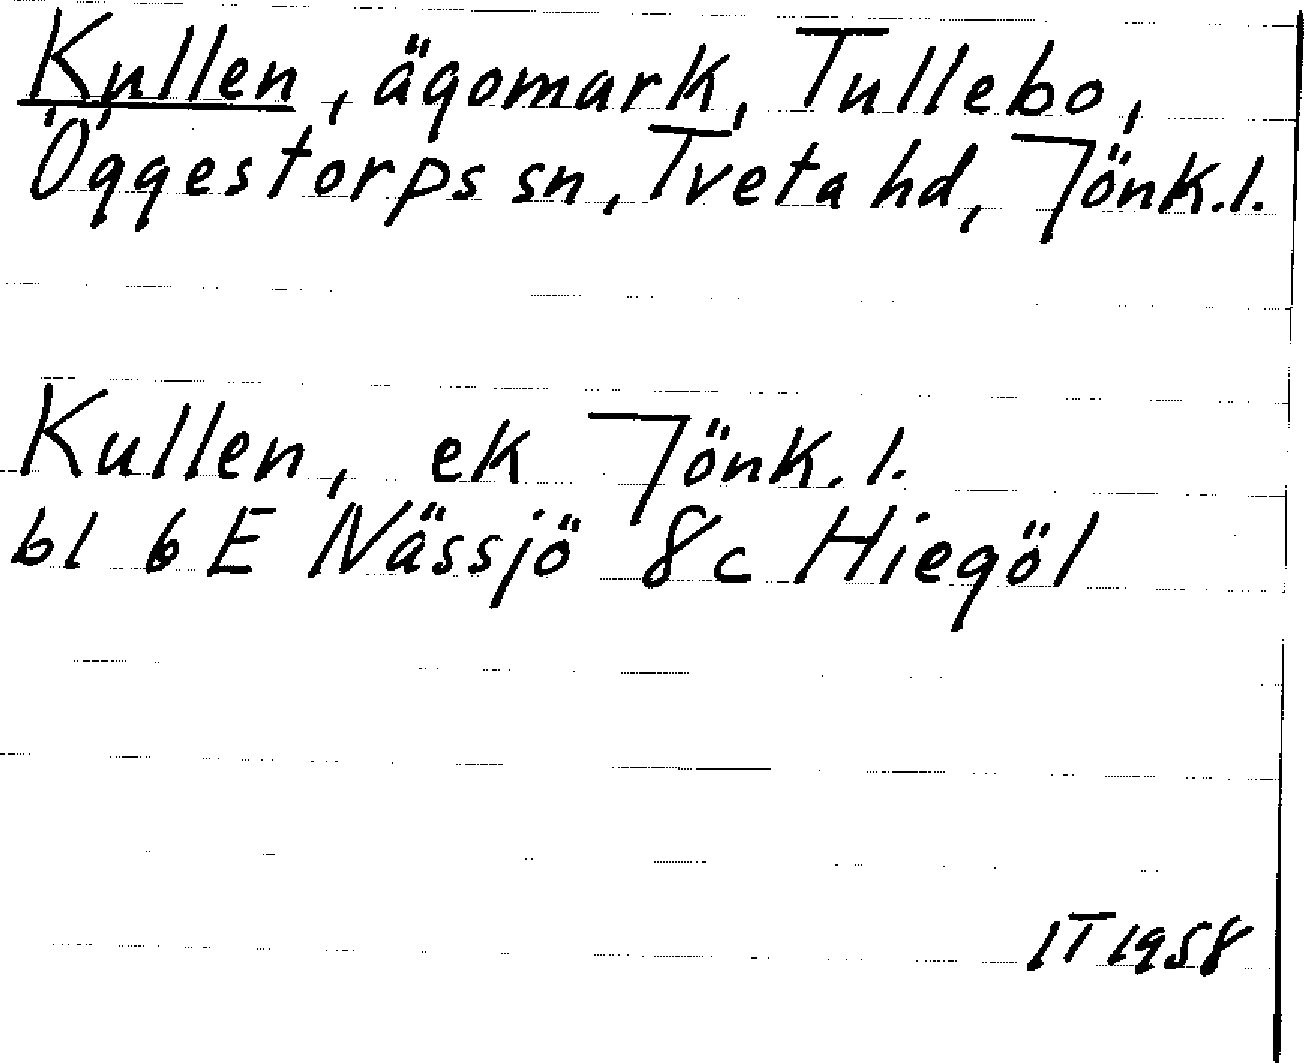 Kullen, ägomark, Tullebo,
Öggestorps sn, Tveta hd, Jönk.l.
Kullen, ek Jönk.l.
bl 6 E Nässjö 8c Hiegöl
IT 1958